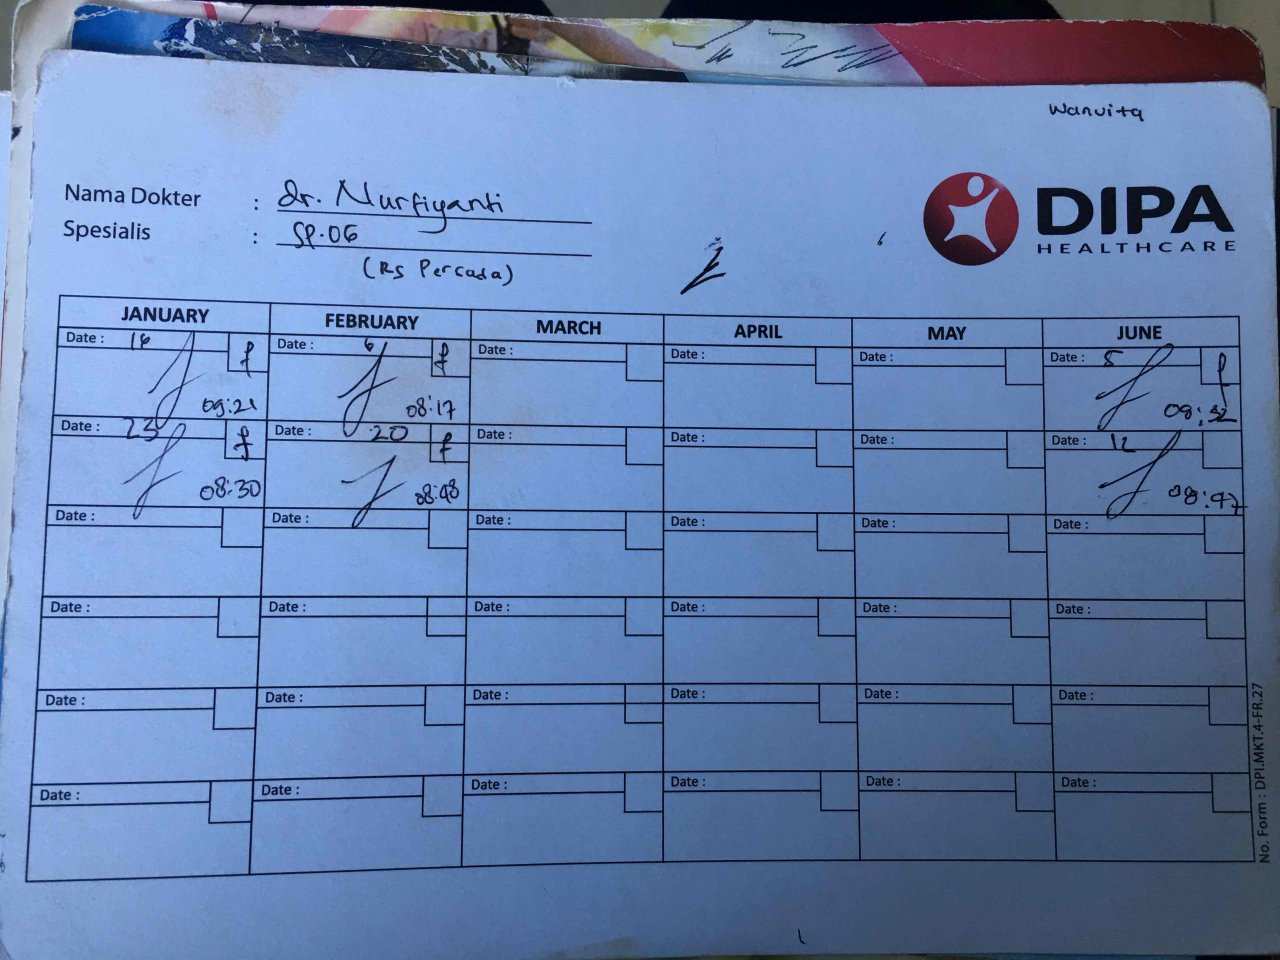 Wanvita
Nama Dokter : dr. Nurfiyanti
Spesialis : SP.OG
(RS Persada)
DIPA
HEALTHCARE
JANUARY FEBRUARY MARCH APRIL MAY JUNE
Date : 16 Date : 6 Date : Date : Date : Date : 5
09:21 08:17 08:32
Date : 23 Date : 20 Date : Date : Date : Date : 12
08:30 08:48 08:47
Date : Date : Date : Date : Date : Date :
Date : Date : Date : Date : Date : Date :
Date : Date : Date : Date : Date : Date :
Date : Date : Date : Date : Date : Date :
No. Form : DPI.MKT.4-FR.27